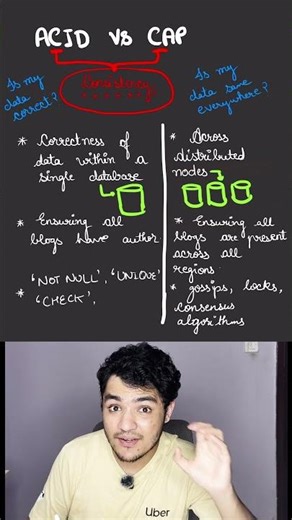 ACID vs CAP
Consistency
Is my
data
correct?
Is my
data same
everywhere?
* Correctness of
data within a
single database
* Ensuring all
blogs have author
* 'NOT NULL', 'UNIQUE'
'CHECK',
* Across
distributed
nodes
* Ensuring all
blogs are present
across all
regions
* gossips, locks,
consensus
algorithms
Uber